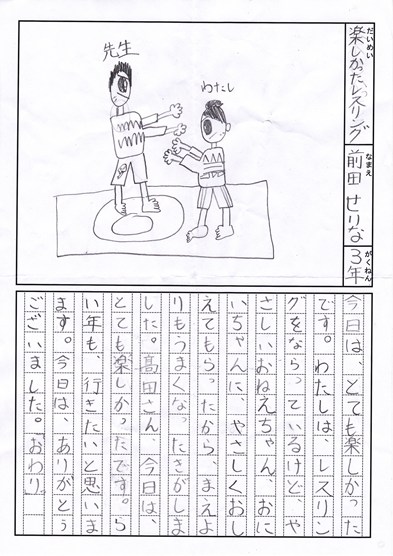 だいめい
楽しかったレスリング
なまえ
前田 せりな
がくねん
3年
先生
わたし
今日は、とても楽しかった
です。わたしは、レスリン
グをならっているけど、や
さしいおねえちゃん、おに
いちゃんに、やさしくおし
えてもらったから、まえよ
りもうまくなったきがしま
した。高田さん、今日は、
とても楽しかったです。ら
い年も、行きたいと思いま
ます。今日は、ありがとう
ございました。「おわり」。